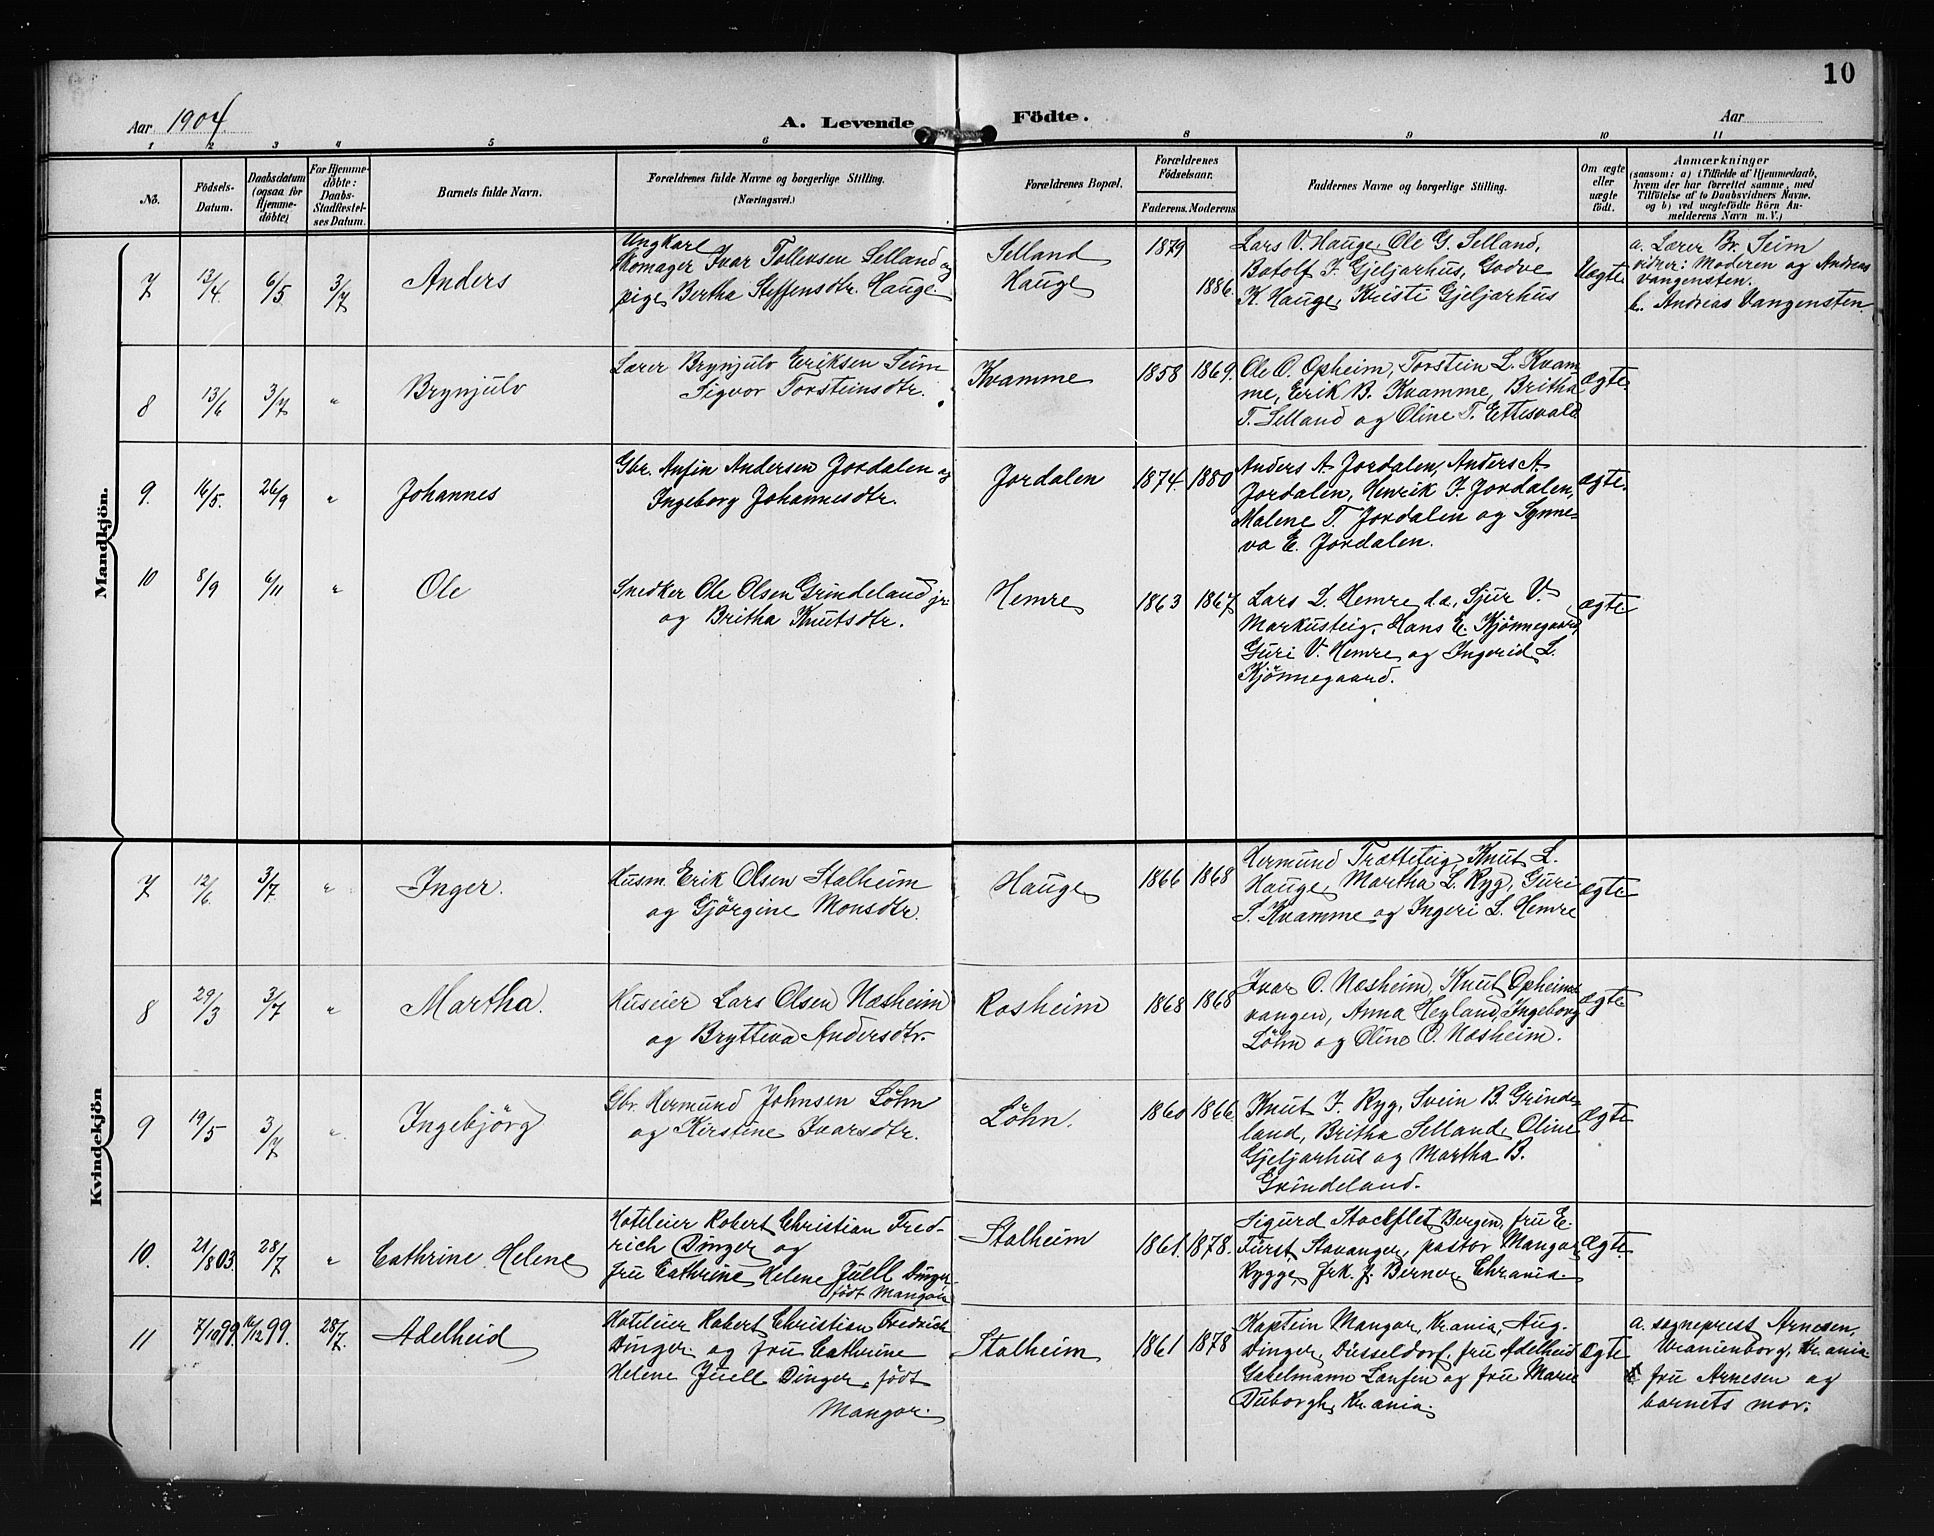 10
Aar 1904
A. Levende Födte.
Aar
1 2 3 4 5 6 8 9 10 11
No.
Födsels-Datum.
Daabsdatum (ogsaa for Hjemmedöbte)
For Hjemmedöbte: Daabs-Stadfæstelses Datum.
Barnets fulde Navn.
Forældrenes fulde Navne og borgerlige Stilling.
(Næringsvei.)
Forældrenes Bopæl.
Forældrenes Födselsaar.
Faderens. Moderens.
Faddernes Navne og borgerlige Stilling.
Om ægte eller uægte födt.
Anmærkninger
(saasom: a) i Tilfælde af Hjemmedaab, hvem der har forrettet samme, med Tilföielse af to Daabsvidners Navne, og b) ved uægtefödte Börn Anmelderens Navn m. V.)
Mandkjön.
7 13/4 6/5 3/7 Anders
Ungkarl
Skomager Ivar Tollevsen Selland og
pige Bertha Steffensdtr. Hauge
Selland
Hauge
1879
1886.
Lars V. Hauge, Ole G. Selland,
Botolf I. Gjeljarhus, Godve
K. Hauge, Kristi Gjeljarhus
Uægte
a. Lærer Br. Seim
vidner: Moderen og Andreas
Vangensten.
b. Andreas Vangensten.
8 13/6 3/7 " Brynjulv
Lærer Brynjulv Eriksen Seim
Sigvor Torsteinsdtr.
Kvamme
1858 1869.
Ole O. Opheim, Torstein L. Kvam-
me, Erik B. Kvamme, Britha
T. Selland og Oline T. Ettesvold
ægte.
9. 16/5. 26/9 " Johannes
Gbr. Anfin Andersen Jordalen og
Ingeborg Johannesdtr.
Jordalen
1874. 1880
Anders A. Jordalen, Anders A.
Jordalen, Henrik I. Jordalen,
Malene T. Jordalen og Synne-
va E. Jordalen.
ægte.
10 8/9 6/11 " Ole
Snedker Ole Olsen Grindeland jr.
og Britha Knutsdtr.
Hemre
1863 1867.
Lars L. Hemre d.æ., Sjur V.
Markusteig, Hans E. Kjönnegaard,
Guri V. Hemre og Ingerid L.
Kjönnegaard.
ægte
Kvindekjön
7 12/6. 3/7. " Inger.
Husm. Erik Olsen Stalheim
og Gjørgine Monsdtr.
Hauge
1866 1868
Hermund Trætteteig, Knut L.
Hauge, Martha L. Ryg, Guri
S. Kvamme og Ingeri L. Hemre
ægte
8 29/3 3/7 " Martha.
Huseier Lars Olsen Næsheim
og Brytteva Andersdtr.
Rosheim
1868 1868
Ivar O. Næsheim, Knut Opheims-
vangen, Anna Heyland, Ingeborg
Löhn og Oline O. Næsheim.
ægte
9 19/5 3/7 " Ingebjörg
Gbr. Hermund Johnsen Löhn
og Kirstine Ivarsdtr.
Löhn.
1860 1866.
Knut I. Ryg, Svein B. Grinde-
land, Britha Selland, Oline
Gjeljarhus og Martha B.
Grindeland.
ægte
10. 21/8 03. 28/7 " Cathrine Helene
Hoteleier Robert Christian Fred-
rich Dinger og
fru Cathrine Helene Juell Dinger
födt Mangor
Stalheim
1861. 1878.
Sigurd Stockflet, Bergen, fru E.
Fürst, Stavanger, pastor Mangor,
Rygge, frk. J. Berner, Chrania.
ægte.
11 7/10 99. 16/12 99. 28/7. Adelheid
Hoteleier Robert Christian Fredrich
Dinger og fru Cathrine
Helene Juell Dinger, födt
Mangor.
Stalheim
1861 1878
Kaptein Mangor, Kr.ania, Aug.
Dinger, Düsseldorf, fru Adelheid
Gabelmann Lansen og fru Marie
Duborgh, Kr.ania.
ægte
a. sogneprest Arnesen,
Uranienborg, Kr.ania
fru Arnesen og
barnets mor.